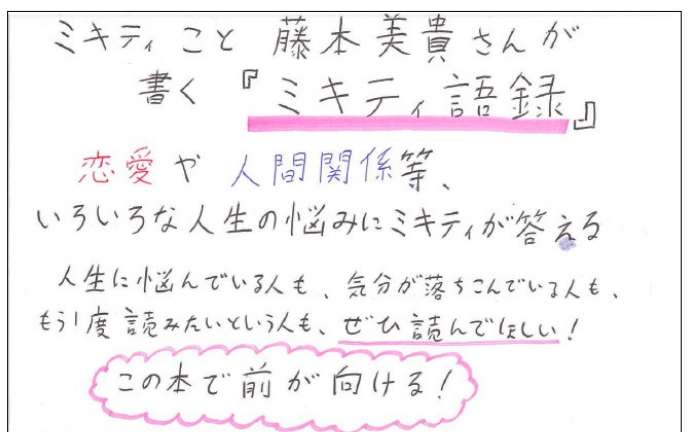 ミキティこと 藤本美貴さんが
書く『ミキティ語録』
恋愛や人間関係等、
いろいろな人生の悩みにミキティが答える
人生に悩んでいる人も、気分が落ちこんでいる人も、
もう1度読みたいという人も、ぜひ読んでほしい!
この本で前が向ける!